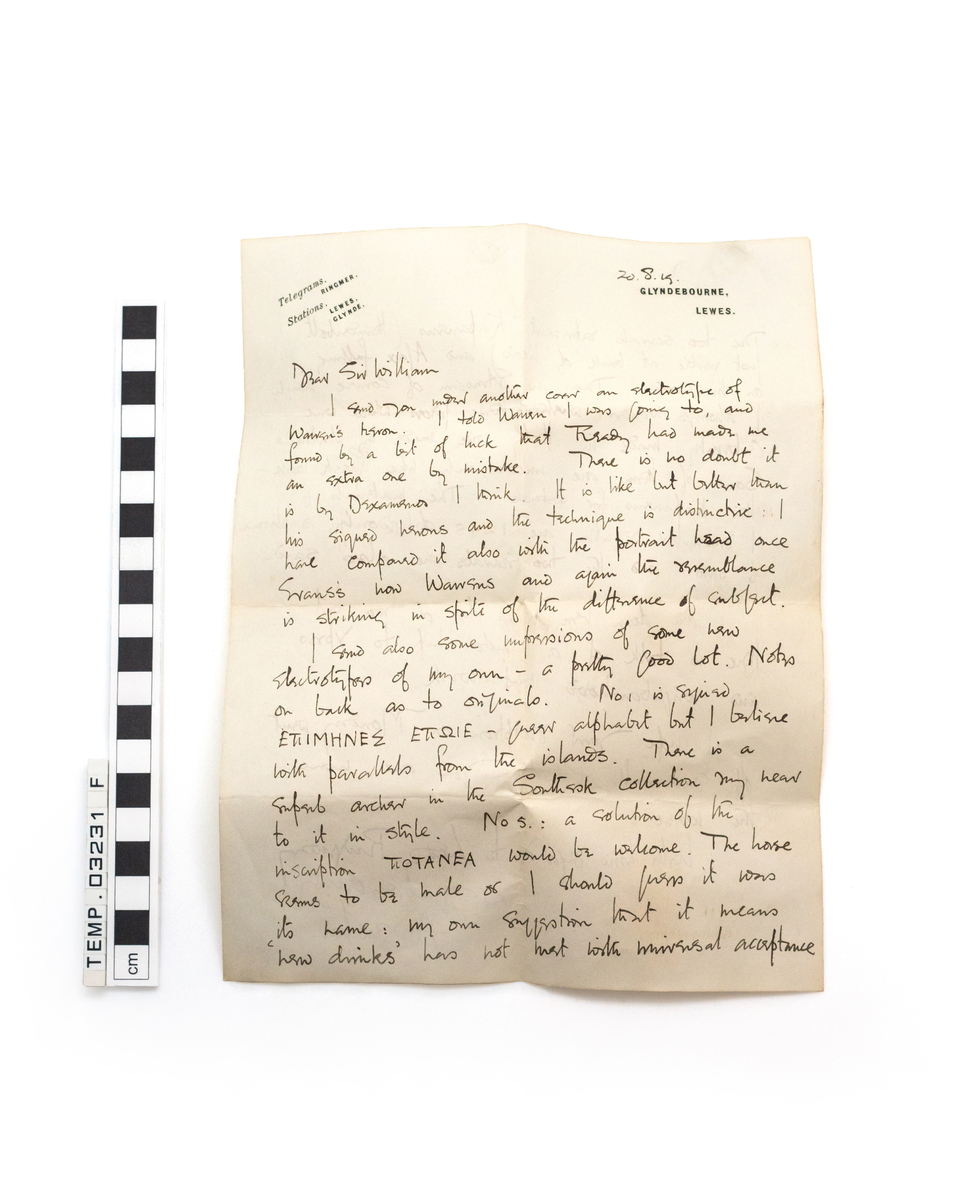 Telegrams. RINGMER.
Stations. LEWES.
GLYNDE.
20.8.19.
GLYNDEBOURNE,
LEWES.
Dear Sir William
I send you under another cover an electrotype of
Warren's heron. I told Warren I was going to, and
found by a bit of luck that Ready had made me
an extra one by mistake. There is no doubt it
is by Dexamenos I think. It is like but better than
his signed herons and the technique is distinctive: I
have compared it also with the portrait head once
Evans's now Warrens and again the resemblance
is striking in spite of the difference of subject.
I send also some impressions of some new
electrotypes of my own – a pretty good lot. Notes
on back as to originals. No 1 is signed
ΕΠΙΜΗΝΕΣ ΕΠΩΙΕ – queer alphabet but I believe
with parallels from the islands. There is a
superb archer in the Southesk collection very near
to it in style. No 5.: a solution of the
inscription ΠΟΤΑΝΕΑ would be welcome. The horse
seems to be male or I should guess it was
its name: my own suggestion that it means
'new drinks' has not met with universal acceptance
TEMP.03231 F
cm